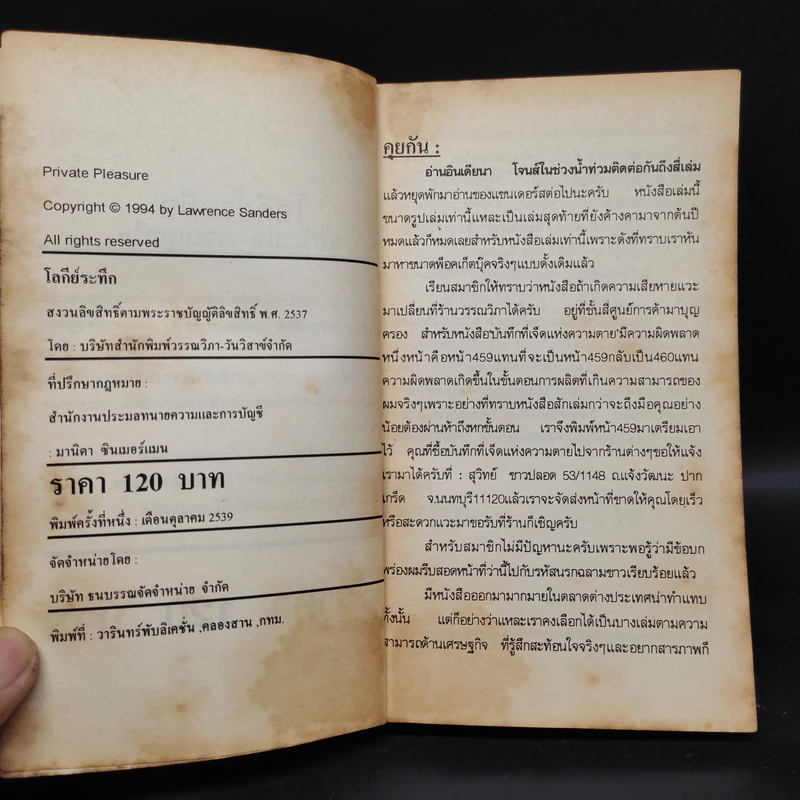 Private Pleasure
Copyright © 1994 by Lawrence Sanders
All rights reserved
โลกีย์ระทึก
สงวนลิขสิทธิ์ตามพระราชบัญญัติลิขสิทธิ์ พ.ศ. 2537
โดย : บริษัทสำนักพิมพ์วรรณวิภา-วันวิสาข์จำกัด
ที่ปรึกษากฎหมาย :
สำนักงานประมลทนายความและการบัญชี
: มานิดา ซินเมอร์แมน
ราคา 120 บาท
พิมพ์ครั้งที่หนึ่ง : เดือนตุลาคม 2539
จัดจำหน่ายโดย :
บริษัท ธนบรรณจัดจำหน่าย จำกัด
พิมพ์ที่ : วารินทร์พับลิเคชั่น ,คลองสาน ,กทม.
คุยกัน :
อ่านอินเดียนา โจนส์ในช่วงน้ำท่วมติดต่อกันถึงสี่เล่ม
แล้วหยุดพักมาอ่านของแซนเดอร์สต่อไปนะครับ หนังสือเล่มนี้
ขนาดรูปเล่มเท่านี้แหละเป็นเล่มสุดท้ายที่ยังค้างคามาจากต้นปี
หมดแล้วก็หมดเลยสำหรับหนังสือเล่มเท่านี้เพราะดังที่ทราบเราหัน
มาหาขนาดพ็อคเก็ตบุ๊คจริงๆแบบดั้งเดิมแล้ว
เรียนสมาชิกให้ทราบว่าหนังสือถ้าเกิดความเสียหายแวะ
มาเปลี่ยนที่ร้านวรรณวิภาได้ครับ อยู่ที่ชั้นสี่ศูนย์การค้ามาบุญ
ครอง สำหรับหนังสือบันทึกที่เจ็ดแห่งความตาย'มีความผิดพลาด
หนึ่งหน้าคือหน้า459แทนที่จะเป็นหน้า459กลับเป็น460แทน
ความผิดพลาดเกิดขึ้นในขั้นตอนการผลิตที่เกินความสามารถของ
ผมจริงๆเพราะอย่างที่ทราบหนังสือสักเล่มกว่าจะถึงมือคุณอย่าง
น้อยต้องผ่านห้าถึงหกขั้นตอน เราจึงพิมพ์หน้า459มาเตรียมเอา
ไว้ คุณที่ซื้อบันทึกที่เจ็ดแห่งความตายไปจากร้านต่างๆขอให้แจ้ง
เรามาได้ครับที่ : สุวิทย์ ขาวปลอด 53/1148 ถ.แจ้งวัฒนะ ปาก
เกร็ด จ.นนทบุรี11120แล้วเราจะจัดส่งหน้าที่ขาดให้คุณโดยเร็ว
หรือสะดวกแวะมาขอรับที่ร้านก็เชิญครับ
สำหรับสมาชิกไม่มีปัญหานะครับเพราะพอรู้ว่ามีข้อบก
พร่องผมรีบสอดหน้าที่ว่านี้ไปกับรหัสนรกฉลามขาวเรียบร้อยแล้ว
มีหนังสือออกมามากมายในตลาดต่างประเทศน่าทำแทบ
ทั้งนั้น แต่ก็อย่างว่าแหละเราคงเลือกได้เป็นบางเล่มตามความ
สามารถด้านเศรษฐกิจ ที่รู้สึกสะท้อนใจจริงๆและอยากสารภาพก็